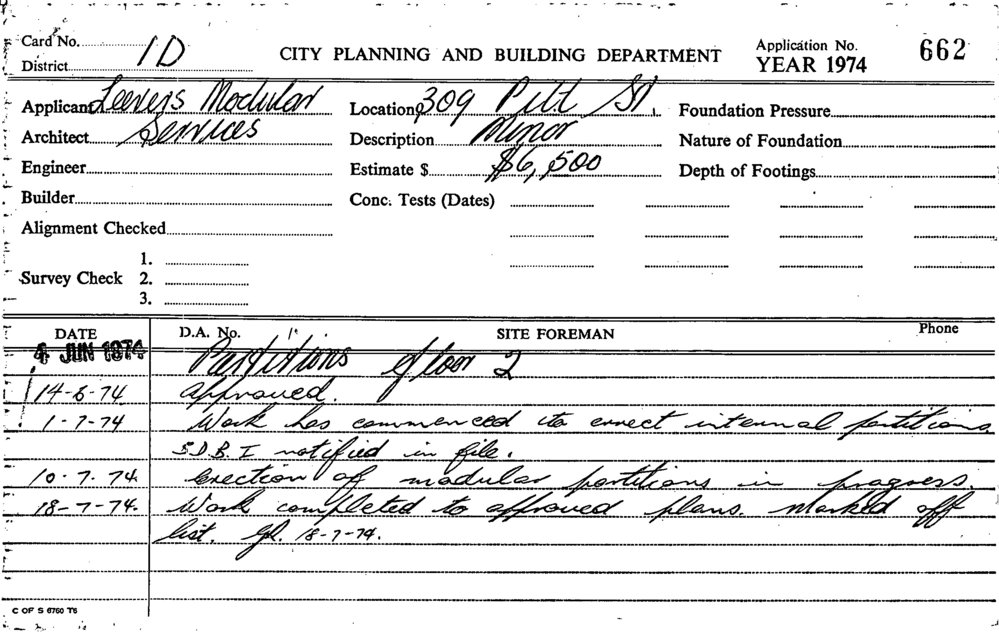 Card No.
District 1D
CITY PLANNING AND BUILDING DEPARTMENT
Application No. 662
YEAR 1974
Applicant Leevers Modular
Architect Services
Engineer
Builder
Alignment Checked
Survey Check 1.
2.
3.
Location 309 Pitt St.
Description Minor
Estimate $ $6,500
Conc. Tests (Dates)
Foundation Pressure
Nature of Foundation
Depth of Footings
DATE D.A. No. SITE FOREMAN Phone
4 JUN 1974 Partitions floor 2
14-6-74 approved.
1-7-74 Work has commenced to errect internal partitions
S.D.B.I notified in file.
10.7.74. Erection of modular partitions in progress.
18-7-74. Work completed to approved plans. Marked off
list. 18-7-74.
C OF S 6760 T6